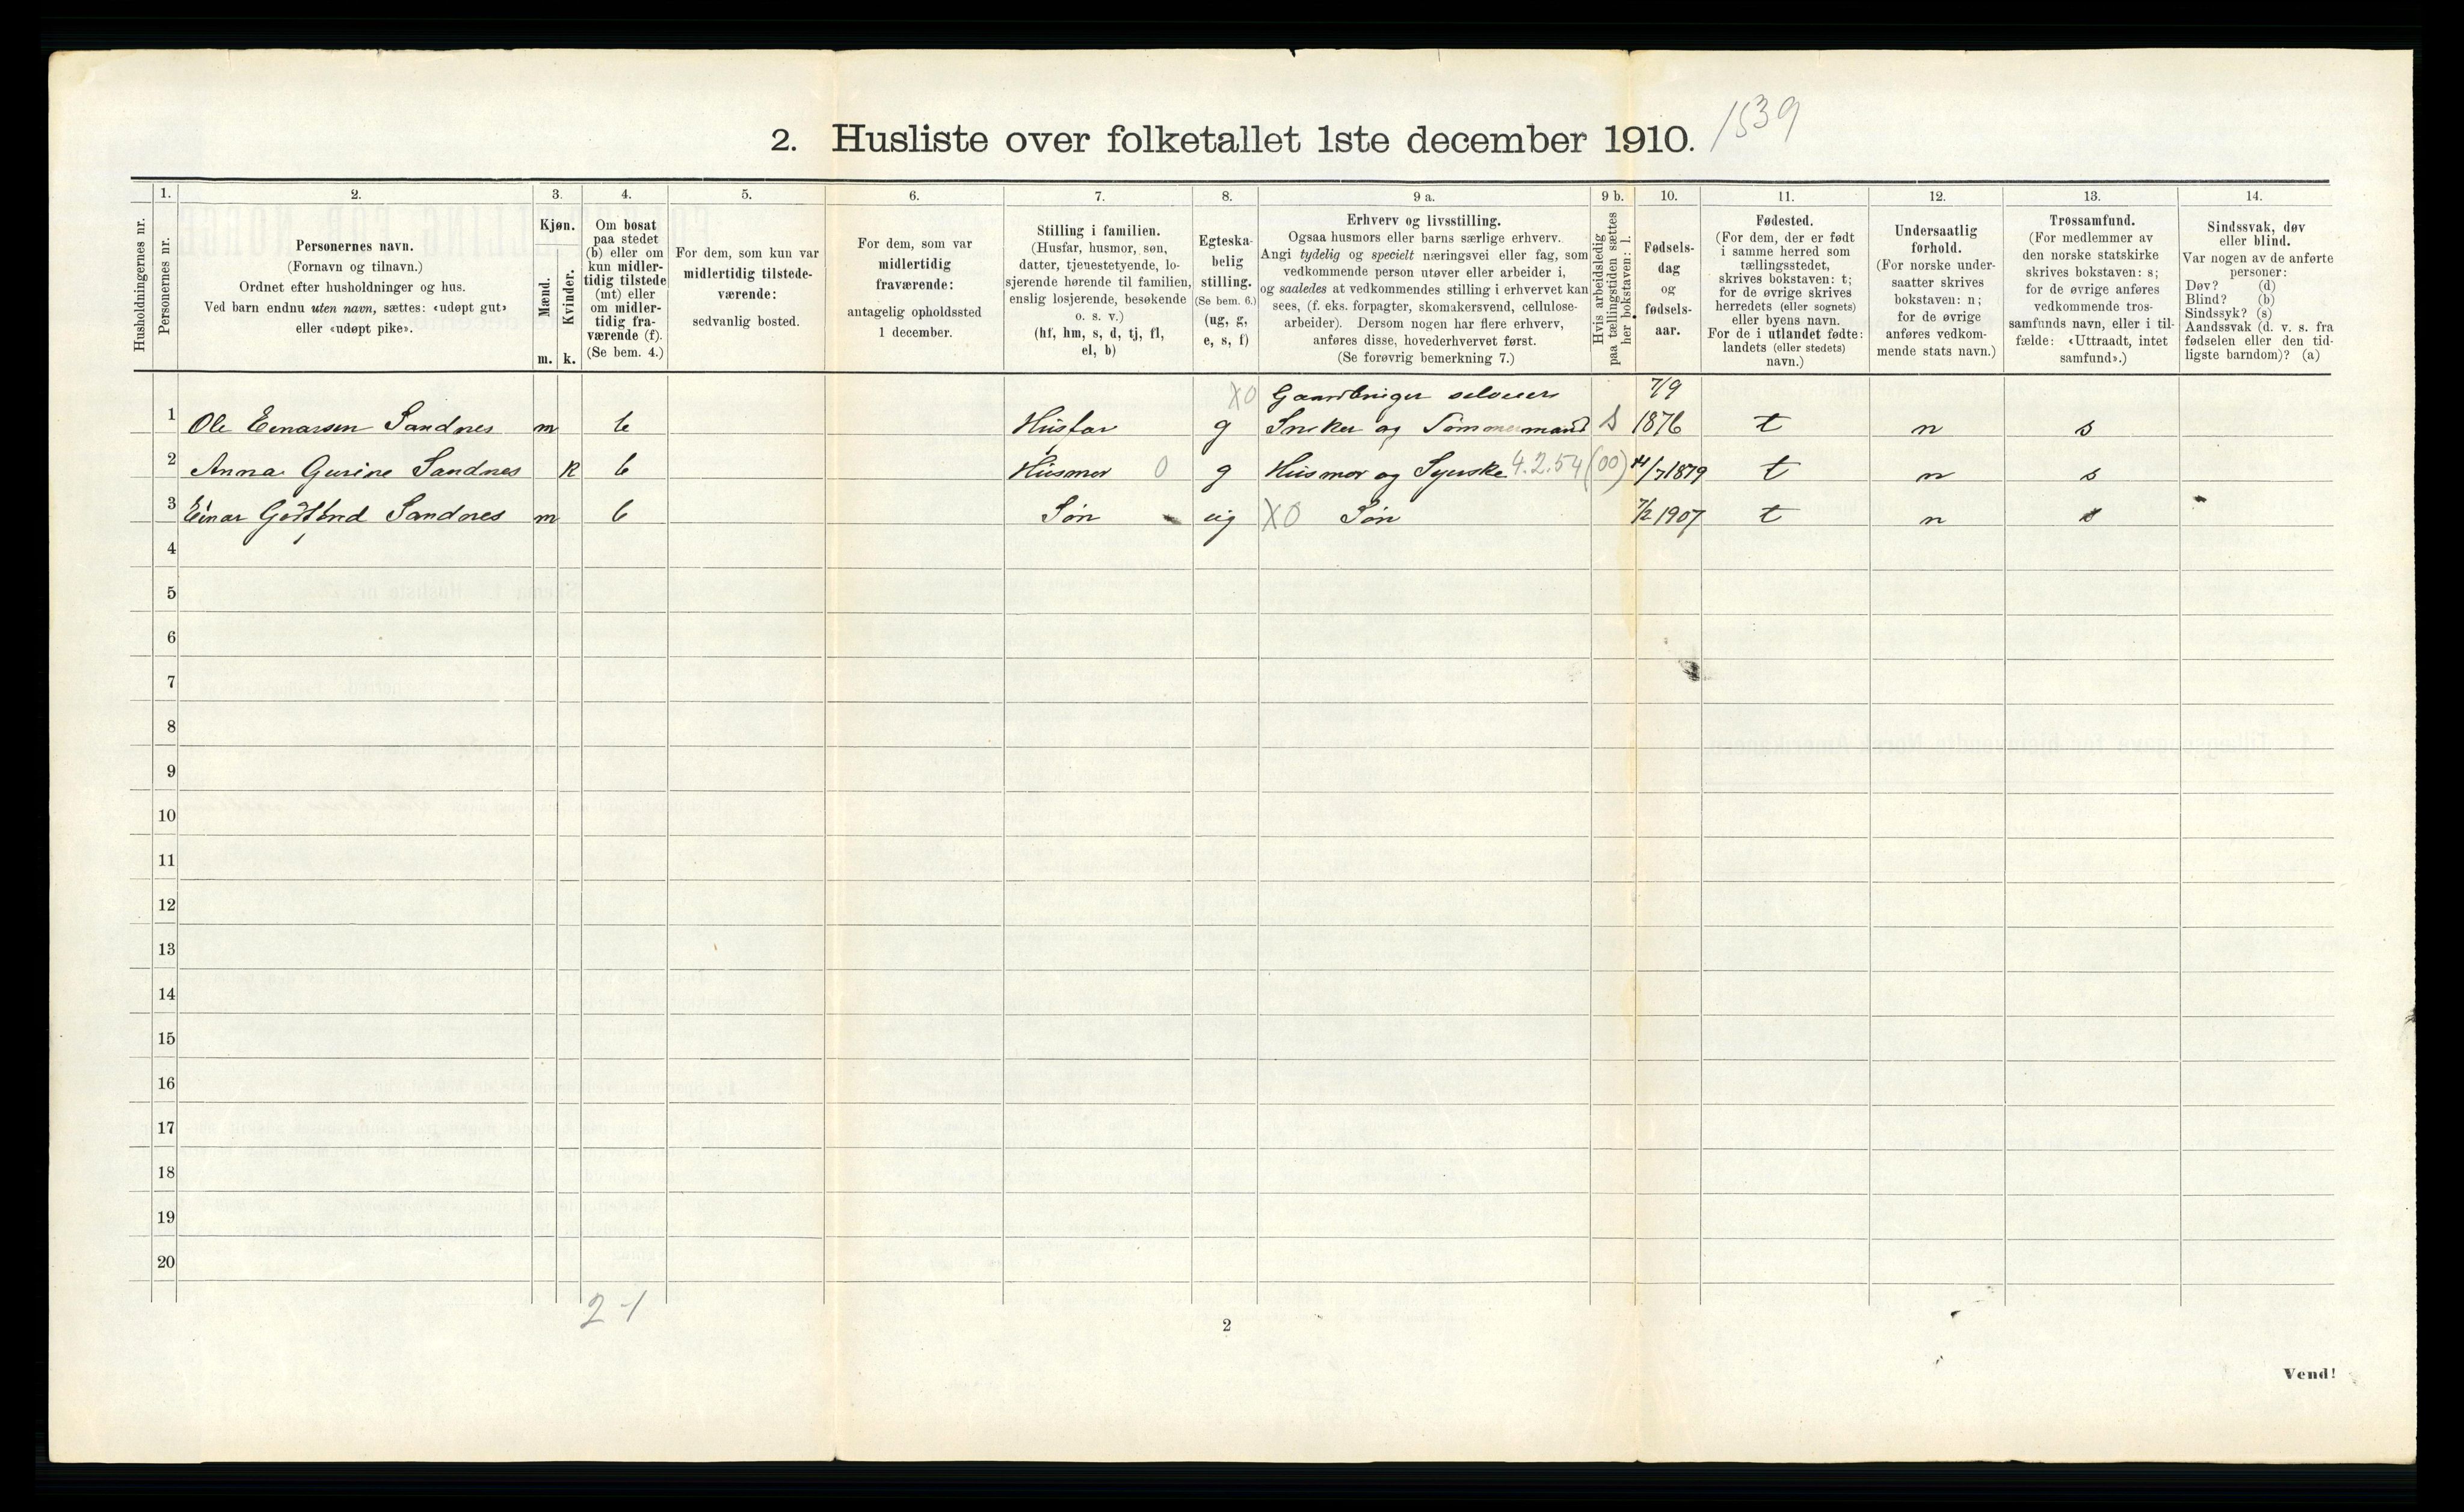 2. Husliste over folketallet 1ste december 1910. 1539
Husholdningernes nr.
1.
Personernes nr.
2.
Personernes navn.
(Fornavn og tilnavn.)
Ordnet efter husholdninger og hus.
Ved barn endnu uten navn, sættes: «udøpt gut»
eller «udøpt pike».
3.
Kjøn.
Mænd.
Kvinder.
m. k.
4.
Om bosat
paa stedet
(b) eller om
kun midler-
tidig tilstede
(mt) eller
om midler-
tidig fra-
værende (f).
(Se bem. 4.)
5.
For dem, som kun var
midlertidig tilstede-
værende:
sedvanlig bosted.
6.
For dem, som var
midlertidig
fraværende:
antagelig opholdssted
1 december.
7.
Stilling i familien.
(Husfar, husmor, søn,
datter, tjenestetyende, lo-
sjerende hørende til familien,
enslig losjerende, besøkende
o. s. v.)
(hf, hm, s, d, tj, fl,
el, b)
8.
Egteska-
belig
stilling.
(Se bem. 6.)
(ug, g,
e, s, f)
9 a.
Erhverv og livsstilling.
Ogsaa husmors eller barns særlige erhverv.
Angi tydelig og specielt næringsvei eller fag, som
vedkommende person utøver eller arbeider i,
og saaledes at vedkommendes stilling i erhvervet kan
sees, (f. eks. forpagter, skomakersvend, cellulose-
arbeider). Dersom nogen har flere erhverv,
anføres disse, hovederhvervet først.
(Se forøvrig bemerkning 7.)
9 b.
Hvis arbeidsledig
paa tællingstiden sættes
her bokstaven: l.
10.
Fødsels-
dag
og
fødsels-
aar.
11.
Fødested.
(For dem, der er født
i samme herred som
tællingsstedet,
skrives bokstaven: t;
for de øvrige skrives
herredets (eller sognets)
eller byens navn.
For de i utlandet fødte:
landets (eller stedets)
navn.)
12.
Undersaatlig
forhold.
(For norske under-
saatter skrives
bokstaven: n;
for de øvrige
anføres vedkom-
mende stats navn.)
13.
Trossamfund.
(For medlemmer av
den norske statskirke
skrives bokstaven: s;
for de øvrige anføres
vedkommende tros-
samfunds navn, eller i til-
fælde: «Uttraadt, intet
samfund».)
14.
Sindssvak, døv
eller blind.
Var nogen av de anførte
personer:
Døv? (d)
Blind? (b)
Sindssyk? (s)
Aandssvak (d. v. s. fra
fødselen eller den tid-
ligste barndom)? (a)
X0 Gaardbruger selveier 7/9
1 Ole Einarsen Sandnes m b Husfar g Snekker og Tømmermand S 1876 t n s
2 Anna Gurine Sandnes k b Husmor 0 g Husmor og Syerske 4.2.54 (00) 14/7 1879 t n s
3 Einar Sandnes m b Søn ug X0 Søn 7/2 1907 t n s
4
5
6
7
8
9
10
11
12
13
14
15
16
17
18
19
20
2-1
2
Vend!